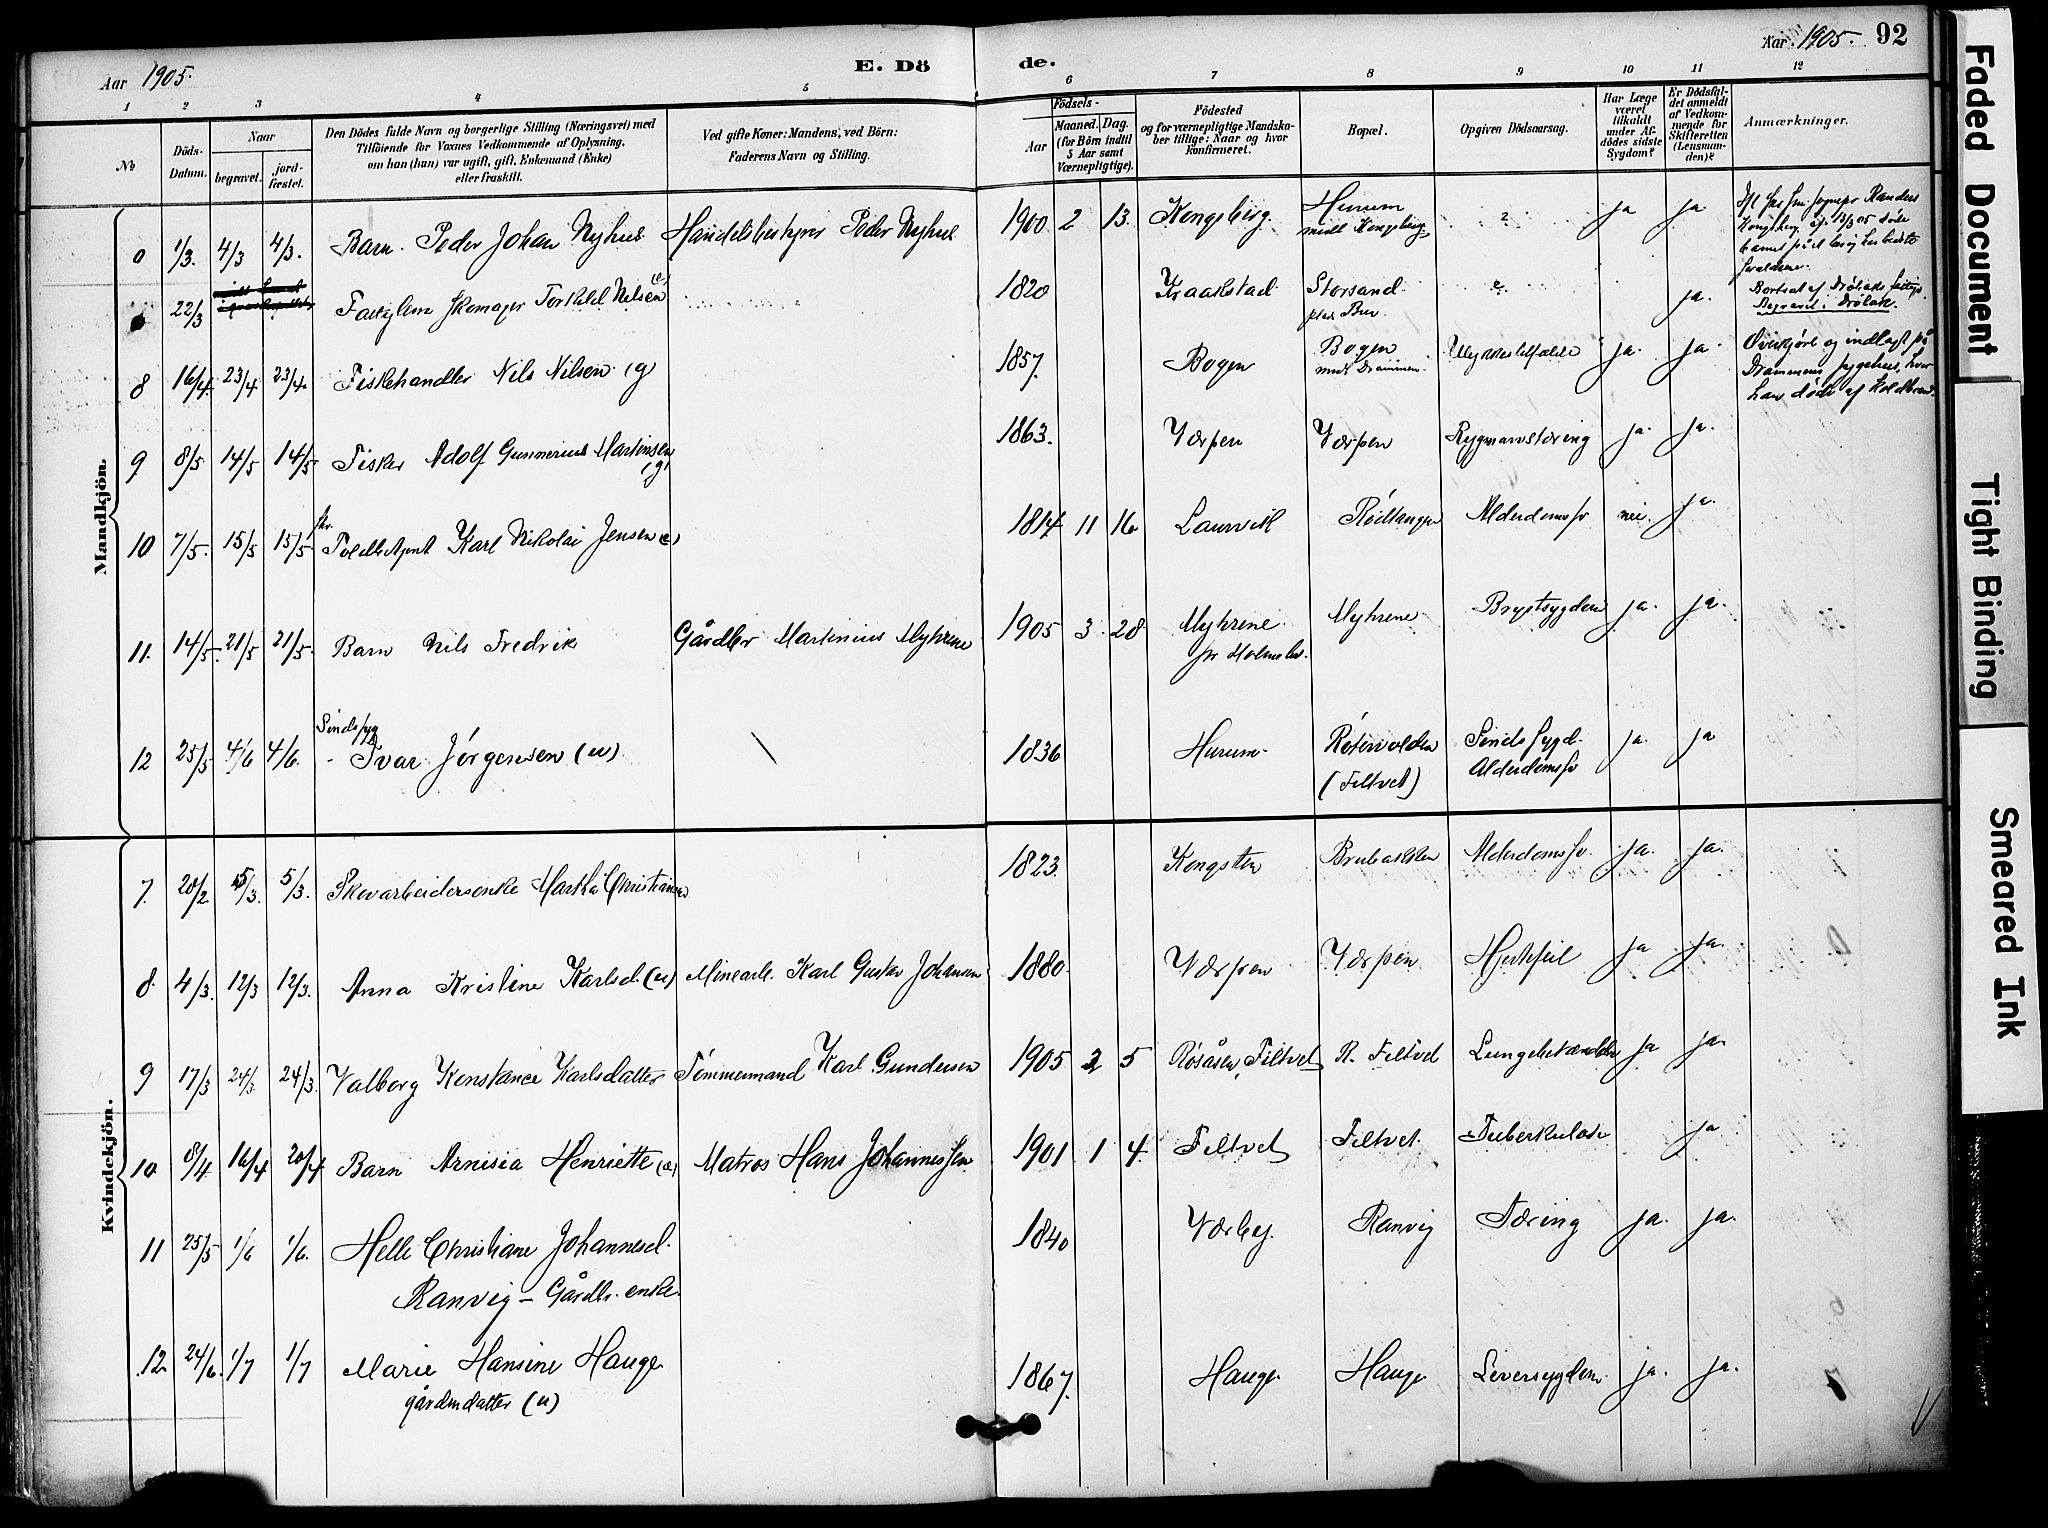 Aar 1905.
E. Dö
de.
Aar 1905. 92
1 2 3 4 5 6 7 8 9 10 11 12
No
Döds-Datum.
Naar
begravet.
jord-fæstet.
Den Dödes fulde Navn og borgerlige Stilling (Næringsvei) med
Tilföiende for Voxnes Vedkommende af Oplysning,
om han (hun) var ugift, gift, Enkemand (Enke)
eller fraskilt.
Ved gifte Koner: Mandens, ved Börn:
Faderens Navn og Stilling.
Födsels-
Aar
Maaned. Dag.
(for Börn indtil
5 Aar samt
Værnepligtige).
Födested
og for værnepligtige Mandska-
ber tillige: Naar og hvor
konfirmeret.
Bopæl.
Opgiven Dödsaarsag.
Har Læge
været
tilkaldt
under Af-
dödes sidste
Sygdom?
Er Dödsfal-
det anmeldt
af Vedkom-
mende for
Skifteretten
(Lensman-
den)?
Anmærkninger.
Mandkjön.
0 1/3. 4/3 4/3. Barn. Peder Johan Nyhus Handelsbestyrer Peder Nyhus 1900 2 13. Kongsberg. Hurum ja ja
22/3 Skomager Torkild Nilsen (e) 1820 Kraakstad Storsand ja.
8 16/4. 23/4 23/4 Fiskehandler Nils Nilsen (g) 1857. Bogen Bogen Ulykkestilfælde ja. ja. Overkjört og indlagt på
Drammens sygehus, hvor
han døde af koldbrand.
9 8/5 14/5 14/5 Fisker Adolf Gunnerius Martinsen (g) 1863. Værpen Værpen Rygmarvstæring ja. ja.
10 7/5. 15/5 15/5 Karl Nikolai Jensen (e) 1814 11 16 Laurvik Rødtangen Alderdomssv nei. ja.
11. 14/5. 21/5 21/5. Barn Nils Fredrik Gårdbr Martinius Myhrene 1905 3 28 Myhrene. pr Holmsbo. Myhrene Brystsygdom ja. ja.
12 25/5 4/6 4/6. Sindssyg
- Ivar Jørgensen (u). 1836 Hurum (Filtvet) Sindssygd.
Alderdomssv ja. ja
Kvindekjön.
7. 20/2. 5/3. 5/3. Skovarbeidersenke Martha Christiansen 1823. Kongsten Brubakken Alderdomssv. ja. ja.
8. 4/3. 12/3 12/3. Anna Kristine Karlsd. (u) Minearb. Karl Gustav Johansen 1880. Værpen Værpen Hjertefeil ja ja.
9 17/3 24/3. 24/3. Valborg Konstance Karlsdatter Tømmermand Karl Gundersen 1905 2 5 Røsåsen, Filtvet R. Filtvet Lungebetændelse ja ja.
10 8/4 16/4 20/4 Barn Arnisia Henriette Matros Hans Johannessen 1901 1 4. Filtvet Filtvet. Tuberkulose ja
11 25/5 1/6 1/6. Helle Christiane Johannesd.
Ranvig - Gårdbr. enke. 1840 Værbg. Ranvig Tæring ja. ja.
12. 24/6. 1/7 1/7 Marie Hansine Hauge
gårdmdatter (u) 1867. Hauge Hauge Leversygdom. ja. ja.
Faded Document
Tight Binding
Smeared Ink